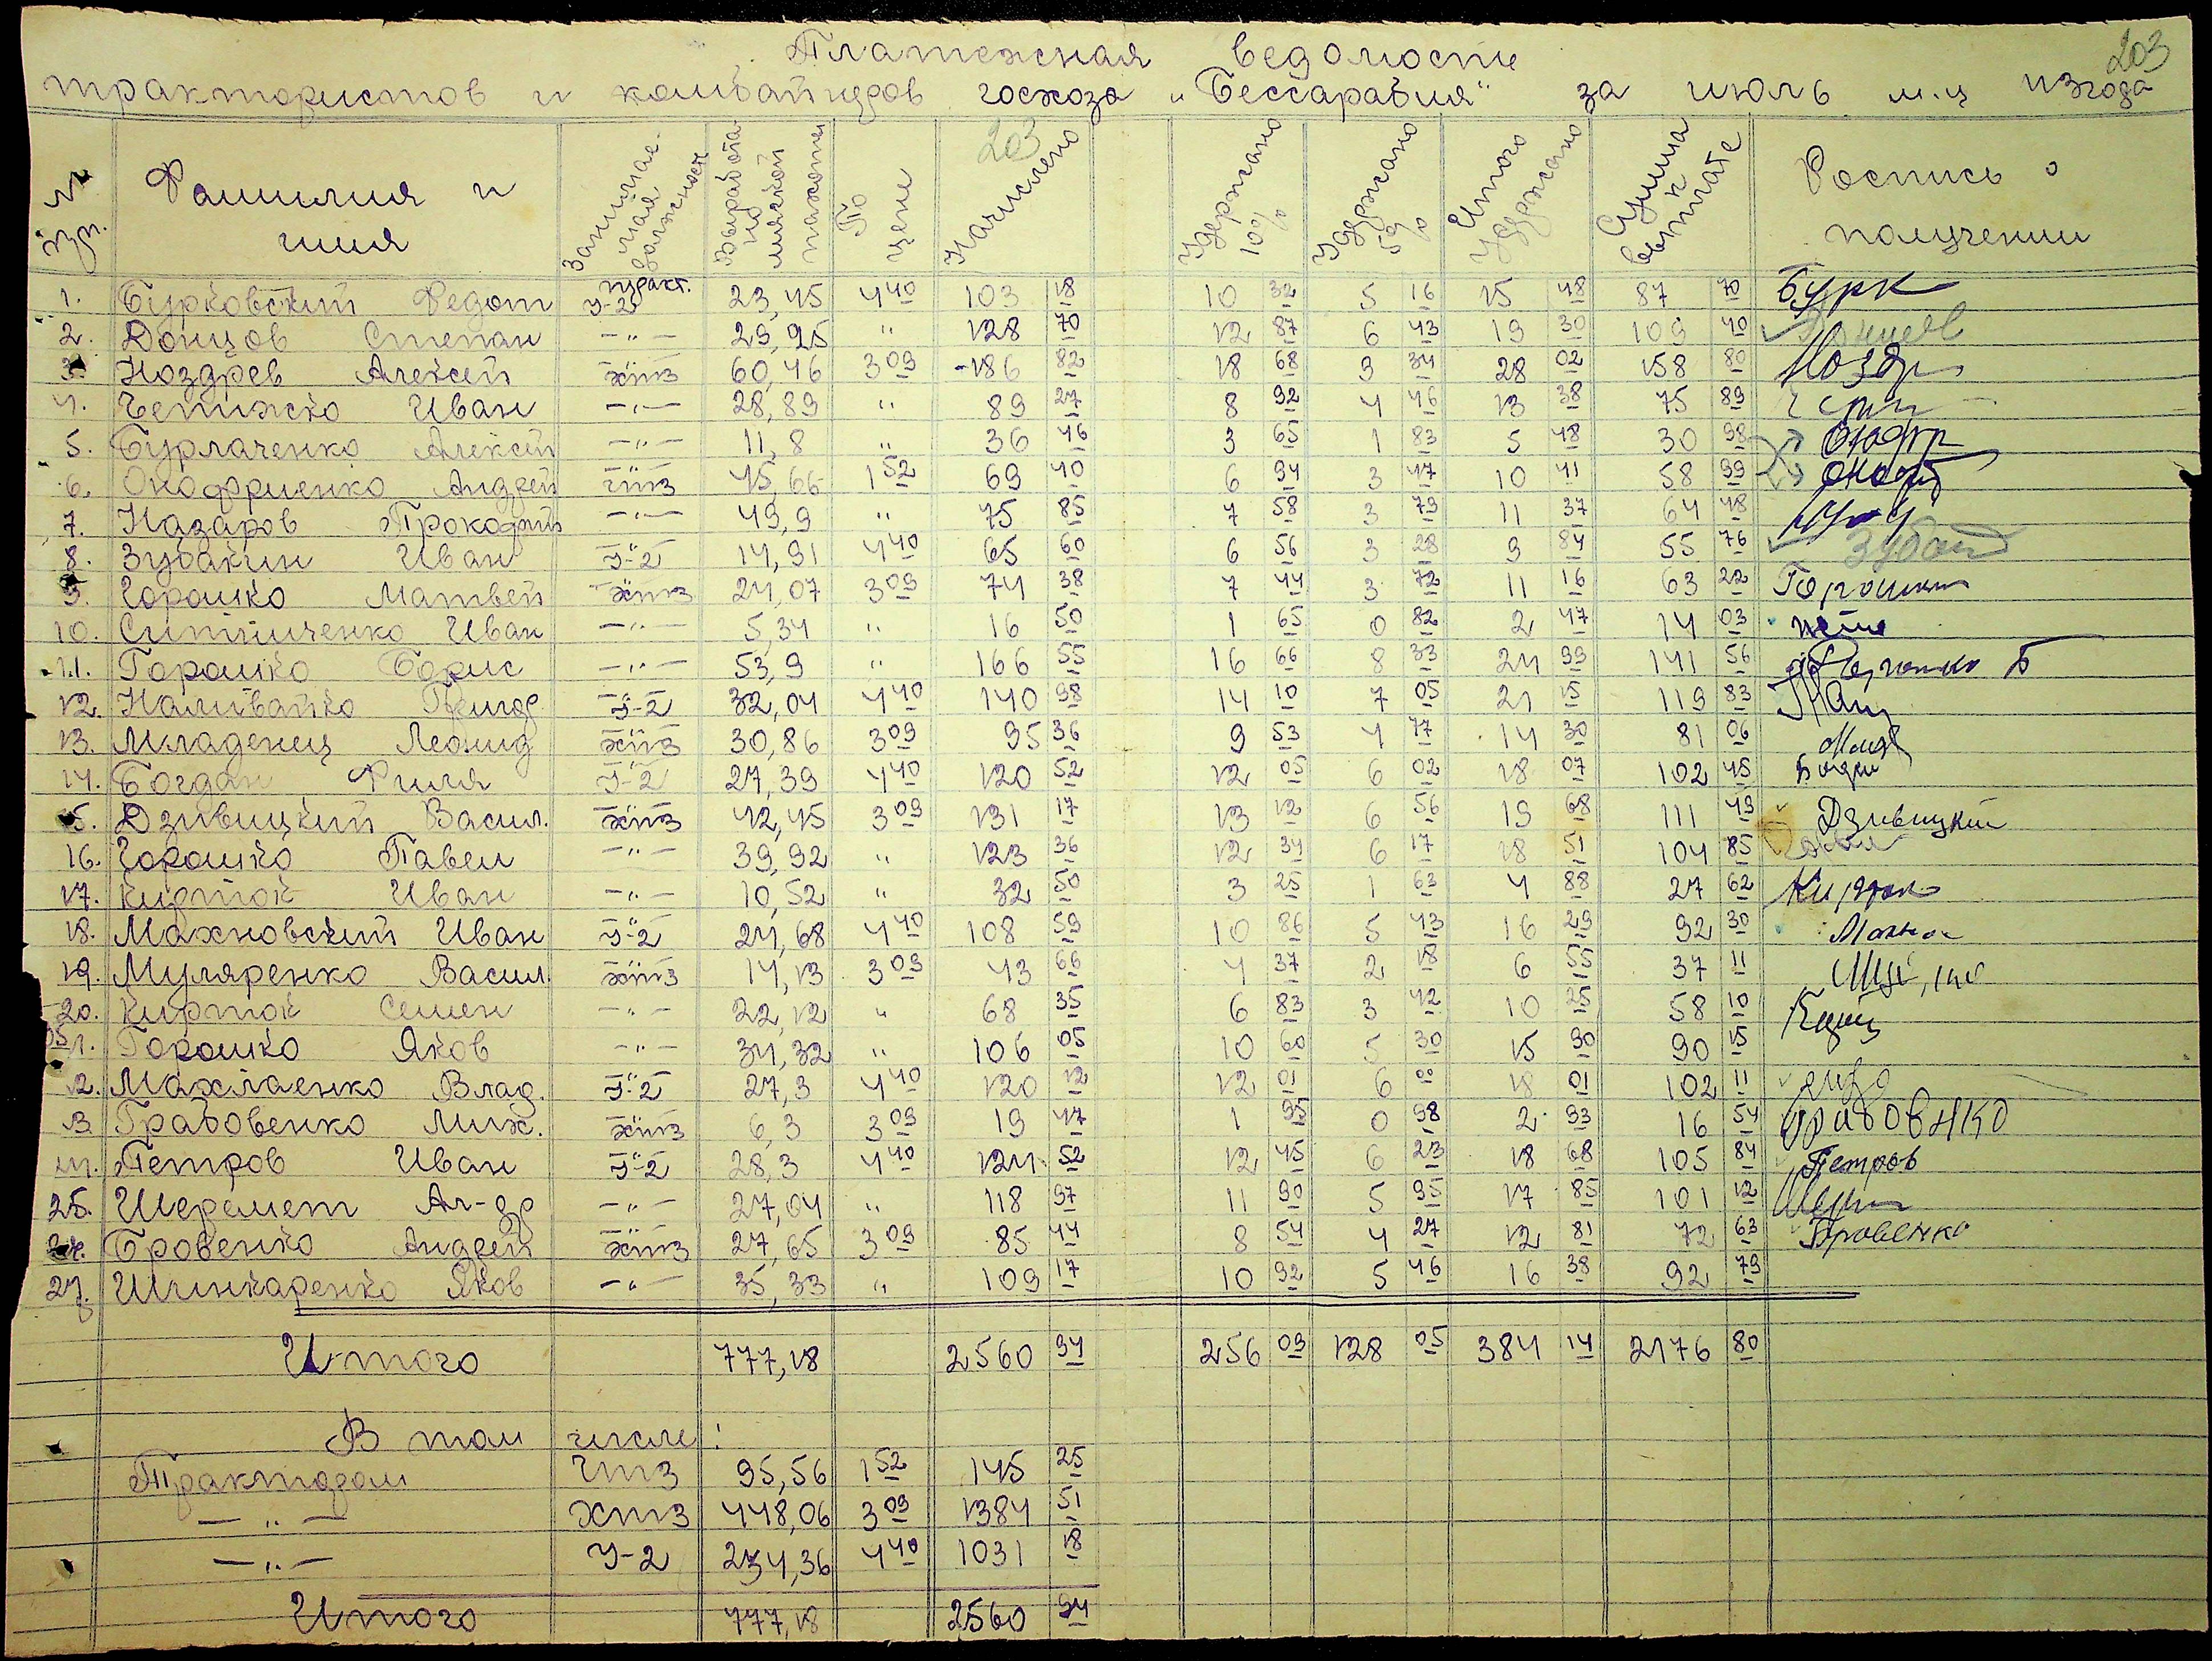 203
Платежная ведомость
трактористов и комбайнеров госхоза „Бессарабия" за июль м-ц 1943 года
203
№ п/п. Фамилия и имя Занимаемая должность Выработано мягкой пахоты По цене Начислено Удержано 10% Удержано 5% Итого удержано Сумма к выплате Роспись о получении
1. Бурковский Федот тракт. У-2 23,45 4 40 103 18 10 32 5 16 15 48 87 70 Бурк
2. Донцов Степан —"— 29,25 " 128 70 12 87 6 43 19 30 109 40 Донцов
3. Ноздрев Алексей ХТЗ 60,46 3 09 186 82 18 68 9 34 28 02 158 80 Ноздр
4. Чепижко Иван —"— 28,89 " 89 27 8 92 4 46 13 38 75 89
5. Бурлаченко Алексей —"— 11,8 " 36 46 3 65 1 83 5 48 30 98 Онофр
6. Онофриенко Андрей ЧТЗ 45,66 1 52 69 40 6 94 3 47 10 41 58 99 Оноф
7. Назаров Прокофий —"— 49,9 " 75 85 7 58 3 79 11 37 64 48
8. Зубакин Иван У-2 14,91 4 40 65 60 6 56 3 28 9 84 55 76 Зубак
9. Горошко Матвей ХТЗ 24,07 3 09 74 38 7 44 3 72 11 16 63 22 Горошк
10. Ситниченко Иван —"— 5,34 " 16 50 1 65 0 82 2 47 14 03
11. Горошко Борис —"— 53,9 " 166 55 16 66 8 33 24 99 141 56 Горошко Б
12. Наливайко У-2 32,04 4 40 140 98 14 10 7 05 21 15 119 83 Нали
13. Младенец Леонид ХТЗ 30,86 3 09 95 36 9 53 4 77 14 30 81 06 Млад
14. Богдан Филя У-2 27,39 4 40 120 52 12 05 6 02 18 07 102 45 Богдан
15. Дзивицкий Васил. ХТЗ 42,45 3 09 131 17 13 12 6 56 19 68 111 49 Дзивицкий
16. Горошко Павел —"— 39,92 " 123 36 12 34 6 17 18 51 104 85
17. Кирток Иван —"— 10,52 " 32 50 3 25 1 63 4 88 27 62
18. Махновский Иван У-2 24,68 4 40 108 59 10 86 5 43 16 29 92 30 Махно
19. Муляренко Васил. ХТЗ 14,13 3 09 43 66 4 37 2 18 6 55 37 11
20. Кирток Семен —"— 22,12 " 68 35 6 83 3 42 10 25 58 10
21. Горошко Яков —"— 34,32 " 106 05 10 60 5 30 15 90 90 15
22. Махлаенко Влад. У-2 27,3 4 40 120 12 12 01 6 00 18 01 102 11
23. Грабовенко Мих. ХТЗ 6,3 3 09 19 47 1 95 0 98 2 93 16 54 Грабовнко
24. Петров Иван У-2 28,3 4 40 124 52 12 45 6 23 18 68 105 84 Петров
25. Шеремет Ал-др —"— 27,04 " 118 97 11 90 5 95 17 85 101 12 Шерем
26. Бровенко Андрей ХТЗ 27,65 3 09 85 44 8 54 4 27 12 81 72 63 Бровенко
27. Шинкаренко Яков —"— 35,33 " 109 17 10 92 5 46 16 38 92 79
Итого 777,18 2560 94 256 09 128 05 384 14 2176 80
В том числе:
Трактором ЧТЗ 95,56 1 52 145 25
—"— ХТЗ 448,06 3 09 1384 51
—"— У-2 234,36 4 40 1031 18
Итого 777,18 2560 94